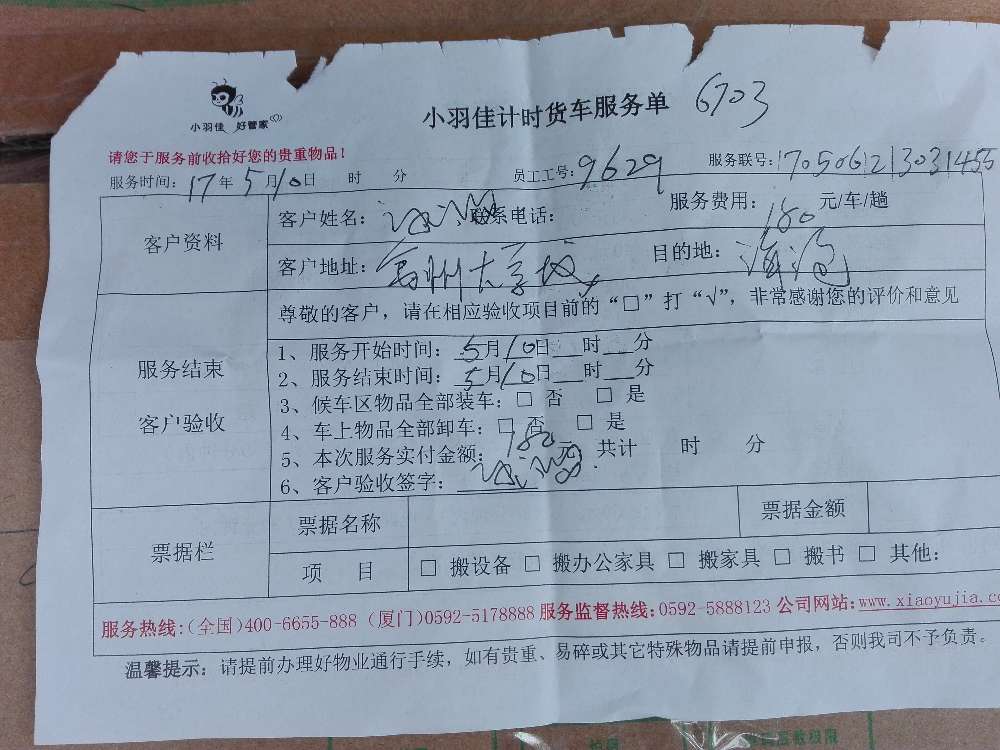 小羽佳 好管家
小羽佳计时货车服务单 6703
请您于服务前收拾好您的贵重物品!
服务时间: 17年5月10日 时 分 员工工号: 9629 服务联号: 170506213031455
客户资料
客户姓名: 联系电话: 服务费用: 180 元/车/趟
客户地址: 大学城 目的地:
尊敬的客户,请在相应验收项目前的“□”打“√”,非常感谢您的评价和意见
服务结束
客户验收
1、服务开始时间: 5月10日__时__分
2、服务结束时间: 5月10日__时__分
3、候车区物品全部装车: □ 否 □ 是
4、车上物品全部卸车: □ 否 □ 是
5、本次服务实付金额: 180 元 共计 时 分
6、客户验收签字:
票据栏
票据名称 票据金额
项 目 □ 搬设备 □ 搬办公家具 □ 搬家具 □ 搬书 □ 其他:
服务热线:(全国)400-6655-888 (厦门)0592-5178888 服务监督热线:0592-5888123 公司网站:www.xiaoyujia.co
温馨提示: 请提前办理好物业通行手续,如有贵重、易碎或其它特殊物品请提前申报,否则我司不予负责。